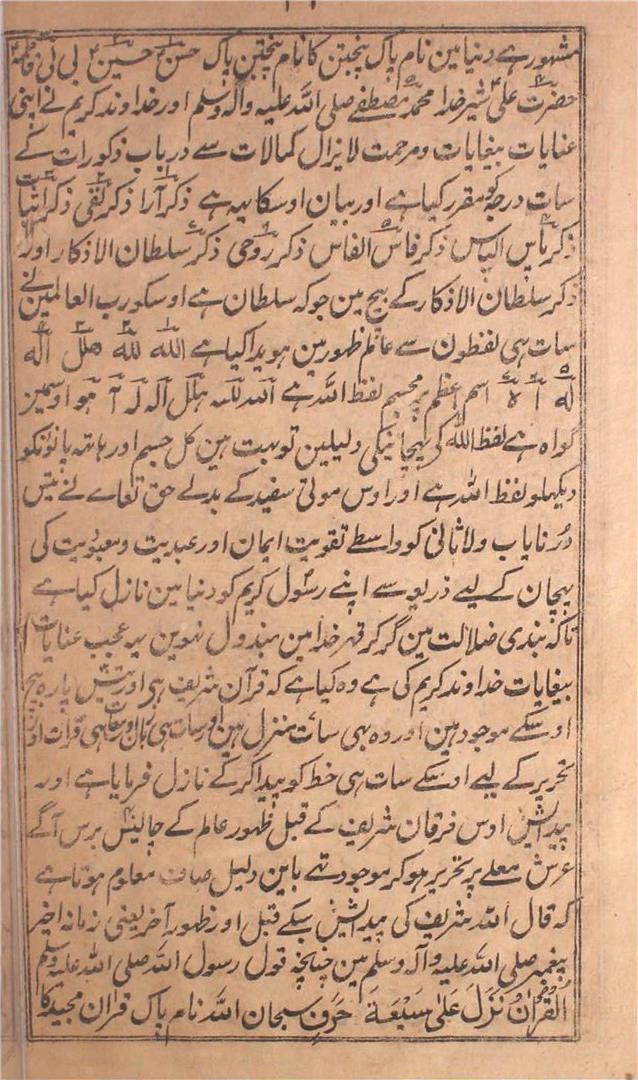 مشہور ہے دنیا مین نام پاک پنجتن کا نام پنجتن پاک حسن حسین بی بی فاطمہ
حضرت علی شیر خدا محمد مصطفے صلی اللہ علیہ وآلہ وسلم اور خداوند کریم نے اپنی
عنایات بیغایات ومرحمت لایزال کمالات سے درباب ذکورات کے
سات درجہ کو مقرر کیا ہے اور بیان اوسکا یہہ ہے ذکر آرا ذکر نفی ذکر اثبات
ذکر پاس الپاس ذکر فاس الفاس ذکر روحی ذکر سلطان الاذکار اور
ذکر سلطان الاذکار کے بیچ مین جو کہ سلطان ہے اوسکو رب العالمین نے
سات ہی لفظون سے عالم ظہور مین ہویدا کیا ہے اللہ للہ ھلل الہ
لہ اسم اعظم پر مجسم لفظ اللہ ہے اللہ للہ ہلل الہ لہ آ ہو اوسمیز
گواہ ہے لفظ اللہ کی پہچاننیکی دلیلین تو بہت ہین کل جسم اور ہاتہ پانونکو
دیکہلو لفظ اللہ ہے اور اوس موتی سفید کے بدلے حق تعالے نے تیس
در نایاب ولاثانی کو واسطے تقویت ایمان اور عبدیت ومعبودیت کی
پہچان کے لیے ذریعہ سے اپنے رسول کریم کو دنیا مین نازل کیا ہے
تاکہ بندی ضلالت مین گر کر قہر خدا مین مبذول نہووین یہہ عجب عنایات
بیغایات خداوند کریم کی ہے وہ کیا ہے کہ قرآن شریف ہی اور تیس پارہ بیچ
اوسکے موجود ہین اور وہ بہی سات منزل ہین اور سات ہی قرات اور
تحریر کے لیے اوسکے سات ہی خط کو پیدا کر کے نازل فرمایا ہے اور
پیدایش اوس فرقان شریف کے قبل ظہور عالم کے چالیس برس آگے
عرش معلے پر تحریر ہو کر موجود تہے باین دلیل صاف معلوم ہوتا ہے
کہ قال اللہ شریف کی پیدایش سبکے قبل اور ظہور آخر یعنی زمانہ اخیر
پیغمبر صلی اللہ علیہ وآلہ وسلم مین چنانچہ قول رسول اللہ صلی اللہ علیہ وسلم
القرآن نزل علی سبعة حرف سبحان اللہ نام پاک قران مجید کا